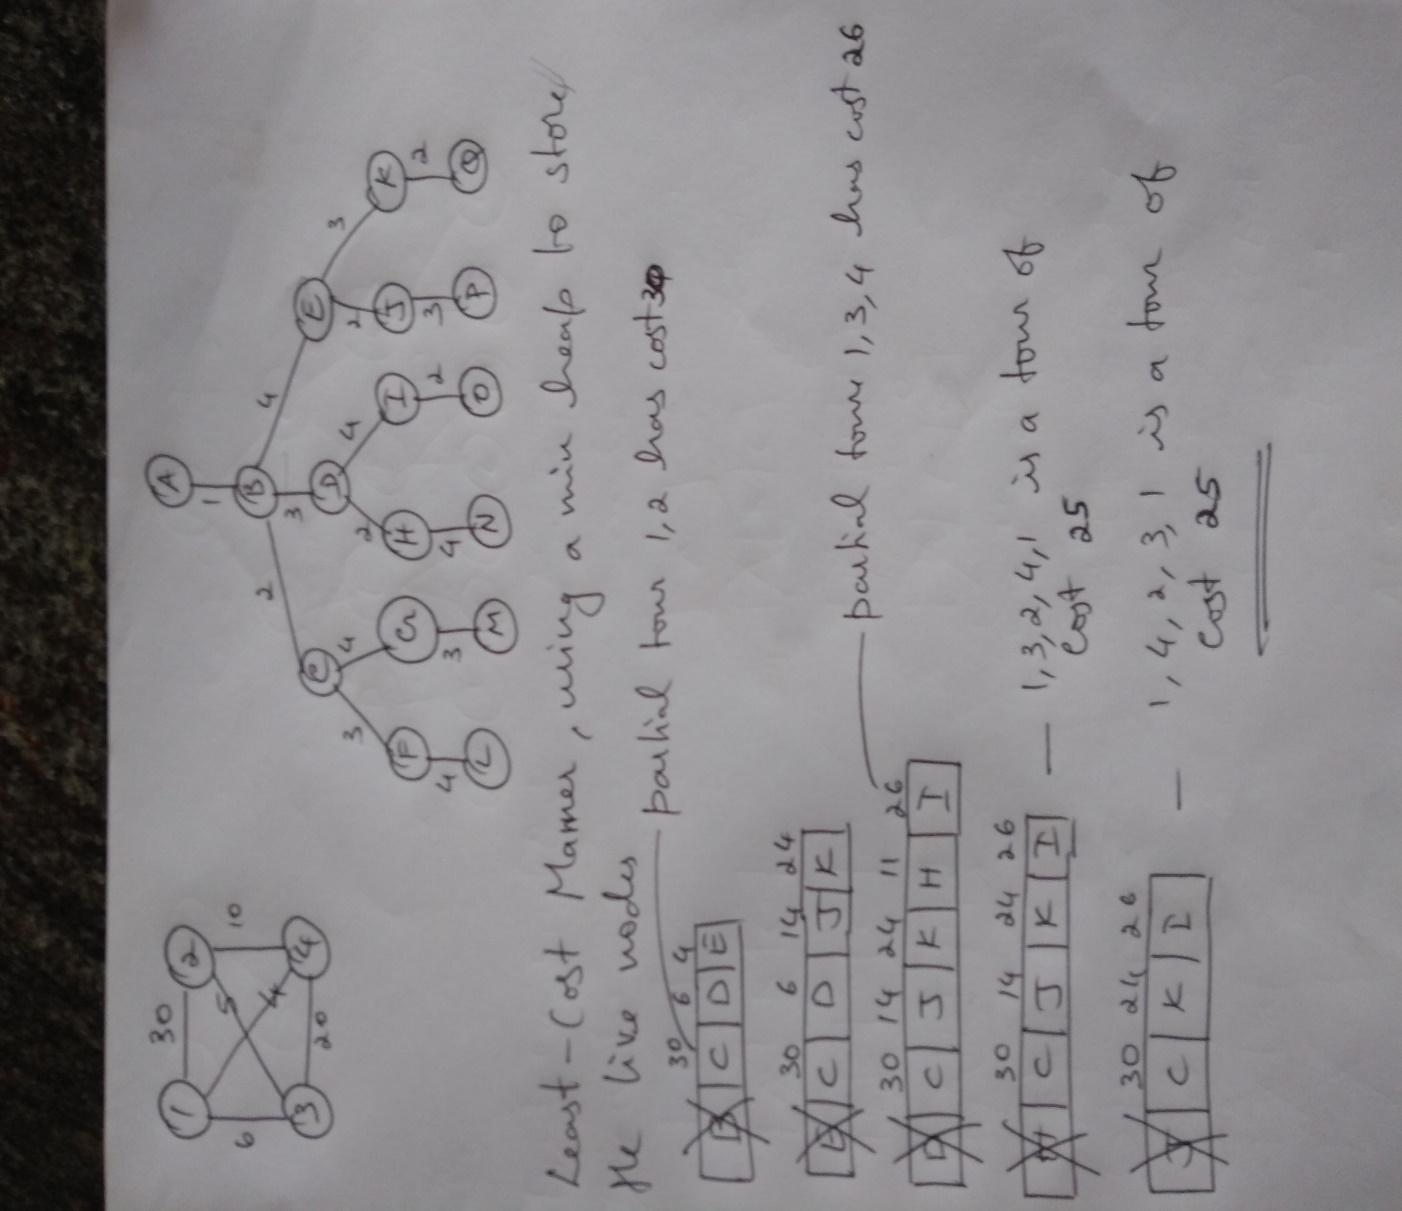 1 30 2
6 5 4 10
3 20 4
A
1
B
2 3 4
C D E
3 4 2 4 2 3
F G H I J K
4 3 4 2 3 2
L M N O P Q
Least-Cost Manner, using a min heap to store
the live nodes
30 6 4 partial tour 1,2 has cost 30
B C D E
30 6 14 24
E C D J K
30 14 24 11 26 partial tour 1,3,4 has cost 26
D C J K H I
30 14 24 26
H C J K I — 1,3,2,4,1 is a tour of
cost 25
30 24 26
J C K I — 1,4,2,3,1 is a tour of
cost 25